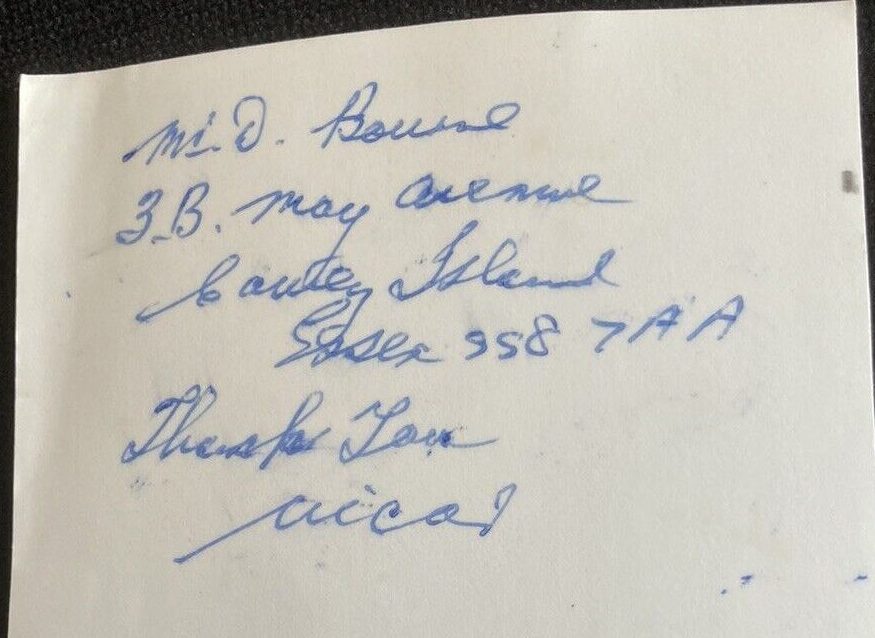 Mr. D. Bourne
3.B. May Avenue
Canvey Island
Essex SS8 7AA
Thank You